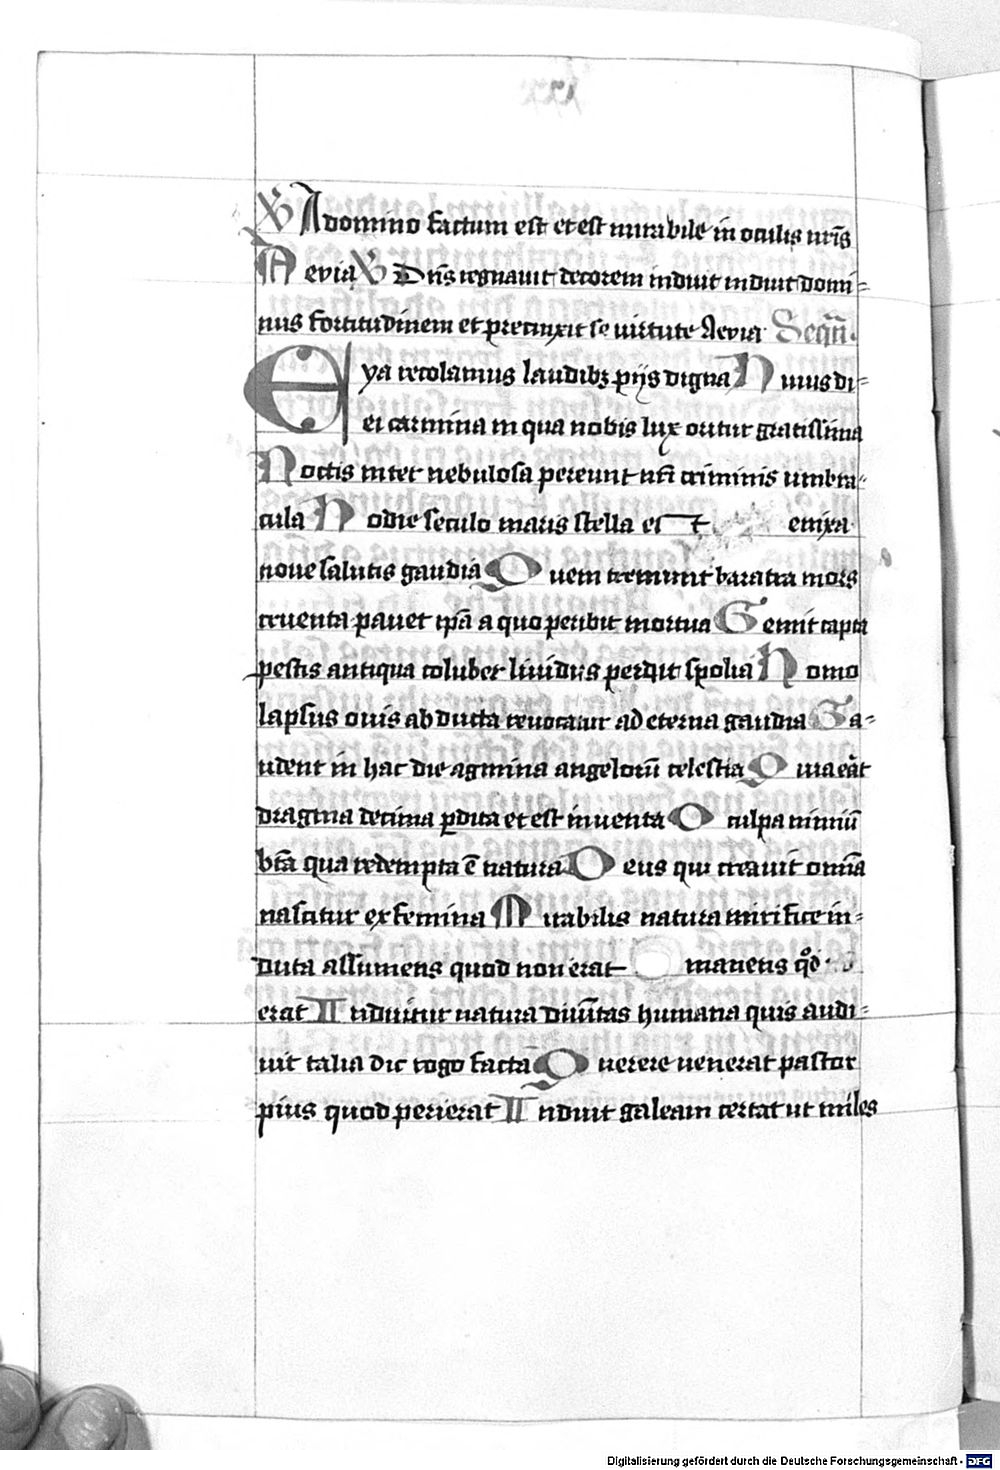 ℣ A domino factum est et est mirabile in oculis nr̄is
Aevia ℣ Dn̄s regnauit decorem induit induit domi=
nus fortitudinem et precinxit se uirtute Aevia Seqūn.
Eya recolamus laudibꝫ pijs digna Huius di=
ei carmina in qua nobis lux oritur gratissima
Noctis inter nebulosa pereunt nr̄i criminis umbra=
cula Hodie seculo maris stella est enixa
noue salutis gaudia Quem tremunt baratra mors
cruenta pauet ip̄a a quo peribit mortua Gemit capta
pestis antiqua coluber liuidus perdit spolia Homo
lapsus ouis abducta reuocatur ad eterna gaudia Ga=
udent in hac die agmina angeloꝝ celestia Quia er̄at
dragma decima ꝑdita et est inuenta O culpa nimiū
bt̄a qua redempta ē natura Deus qui creauit omīa
nascitur ex femina Mirabilis natura mirifice in=
duta assumens quod non erat manens qd̊
erat Induitur natura diuītas humana quis audi=
uit talia dic rogo facta Querere uenerat pastor
pius quod perierat Induit galeam certat ut miles
Digitalisierung gefördert durch die Deutsche Forschungsgemeinschaft - DFG